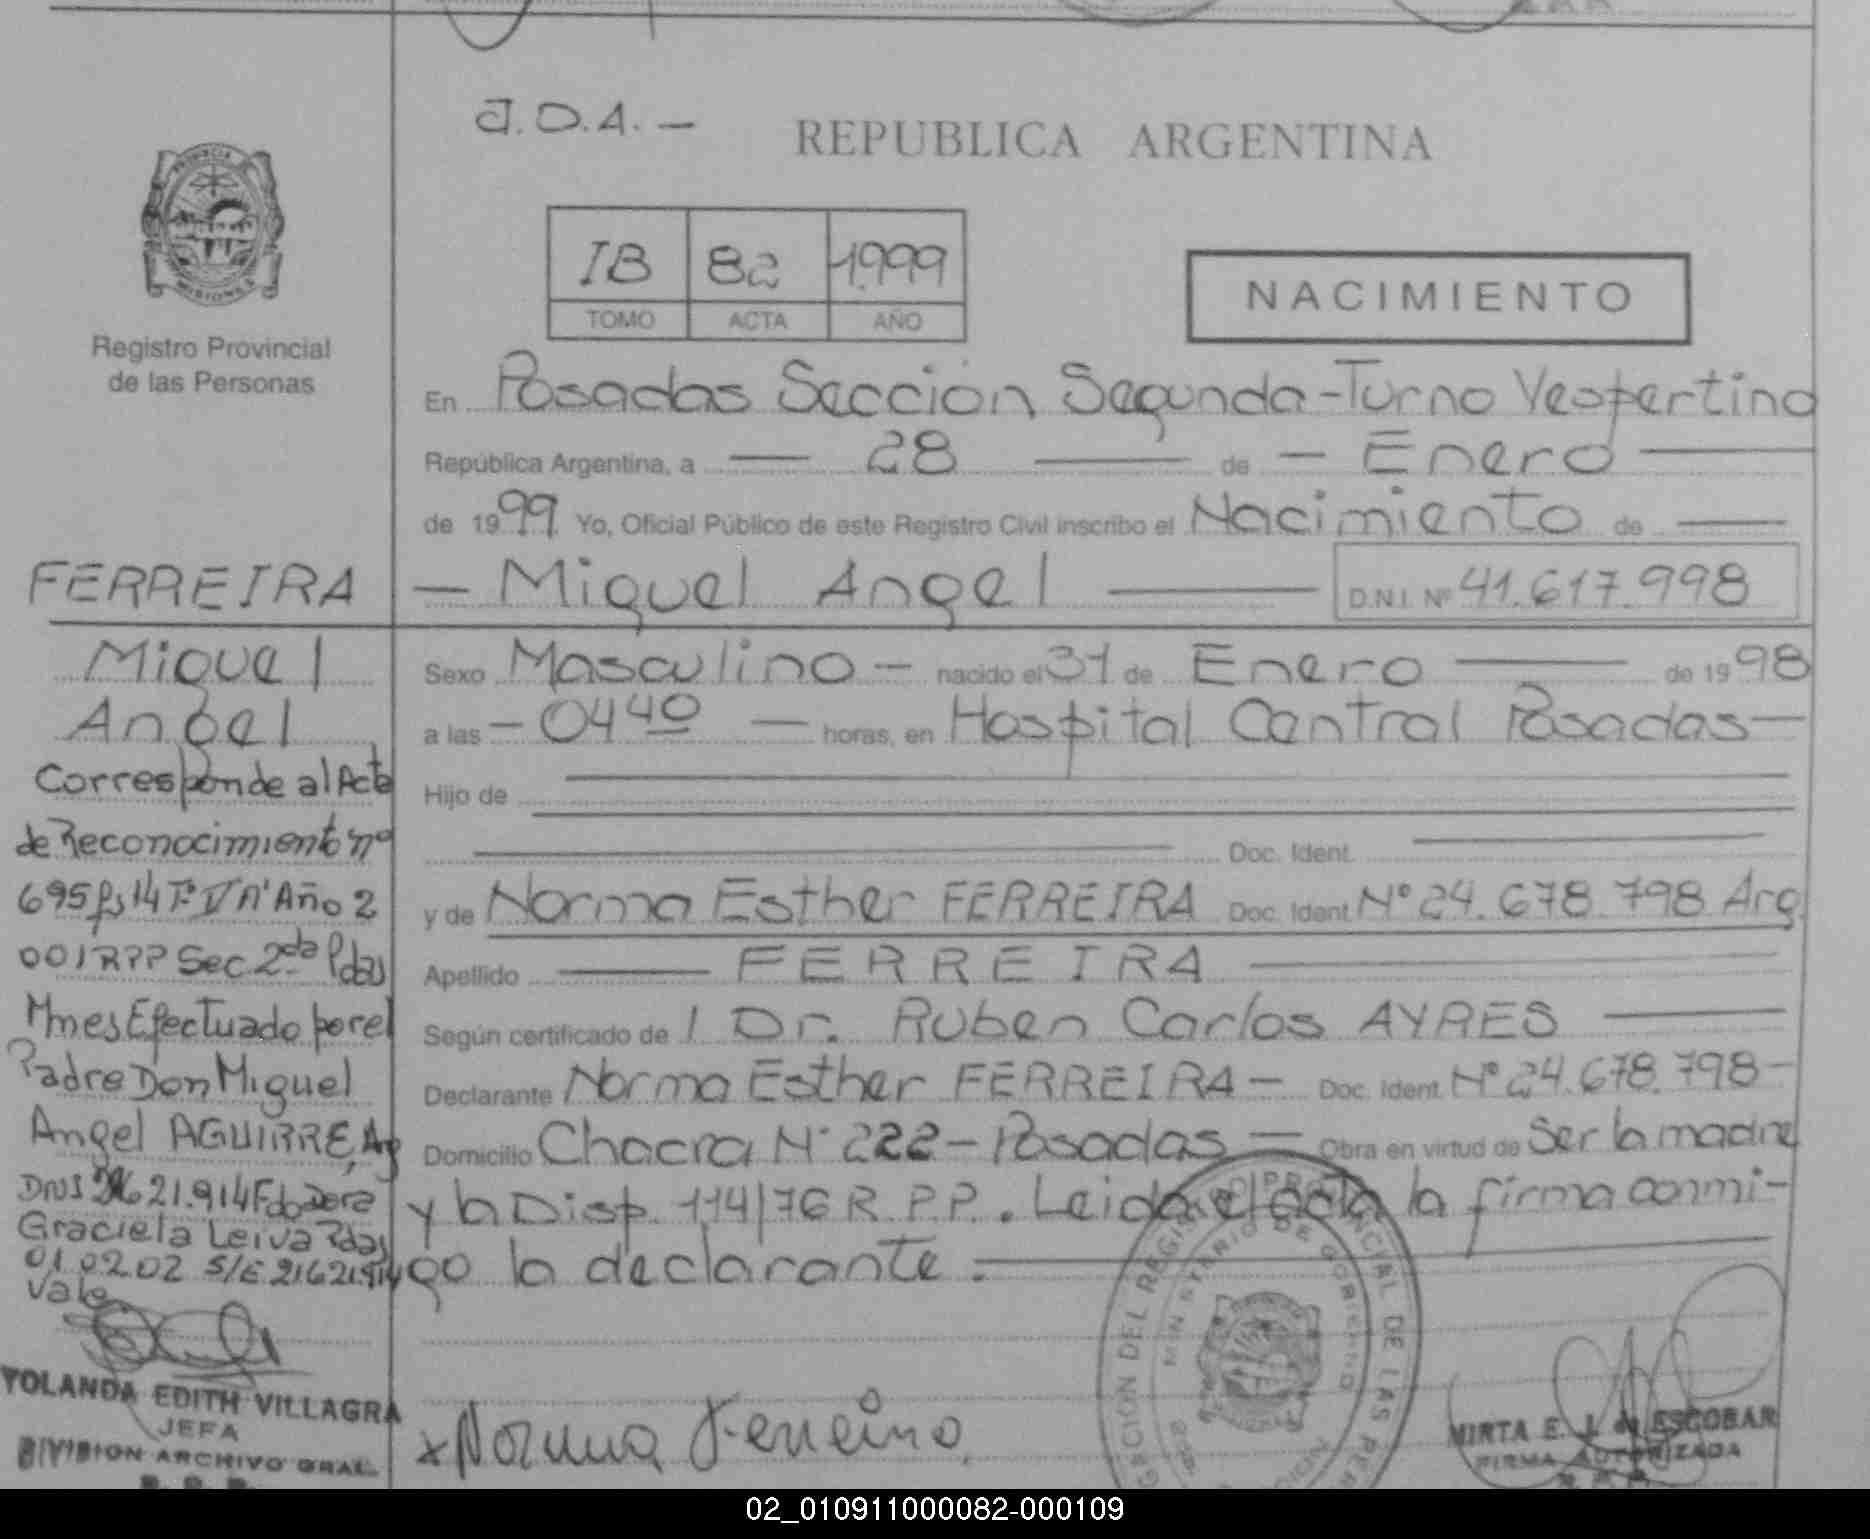 J.D.A. —
REPUBLICA ARGENTINA
PROVINCIA
MISIONES
Registro Provincial
de las Personas
IB 82 1.999
TOMO ACTA AÑO
NACIMIENTO
En Posadas Sección Segunda - Turno Vespertino
República Argentina, a — 28 — de — Enero —
de 1999 Yo, Oficial Público de este Registro Civil inscribo el Nacimiento de —
— Miguel Angel — D.N.I. Nº 41.617.998
Sexo Masculino — nacido el 31 de Enero — de 1998
a las — 04 40 — horas, en Hospital Central Posadas —
Hijo de
Doc. Ident.
y de Norma Esther FERREIRA Doc. Ident. Nº 24.678.798 Arg.
Apellido — FERREIRA —
Según certificado de l Dr. Ruben Carlos AYRES —
Declarante Norma Esther FERREIRA — Doc. Ident. Nº 24.678.798 —
Domicilio Chacra Nº 222 - Posadas — Obra en virtud de Ser la madre
y la Disp. 114/76 R.P.P. . Leida el acta la firma conmi-
go la declarante. —
x Norma Ferreira
FERREIRA
Miguel
Angel
Corresponde al Acta
de Reconocimiento nº
695 fs 14 Tº Año 2
001 RPP Sec 2da Pdas
Mnes Efectuado por el
Padre Don Miguel
Angel AGUIRRE, Arg
DNI 21.914 Fdo Dora
Graciela Leiva Pdas
01.02.02 S/E 21621.914
Vale
YOLANDA EDITH VILLAGRA
JEFA
DIVISION ARCHIVO GRAL.
MINISTERIO DE GOBIERNO
MIRTA E. J. de ESCOBAR
FIRMA AUTORIZADA
02_010911000082-000109